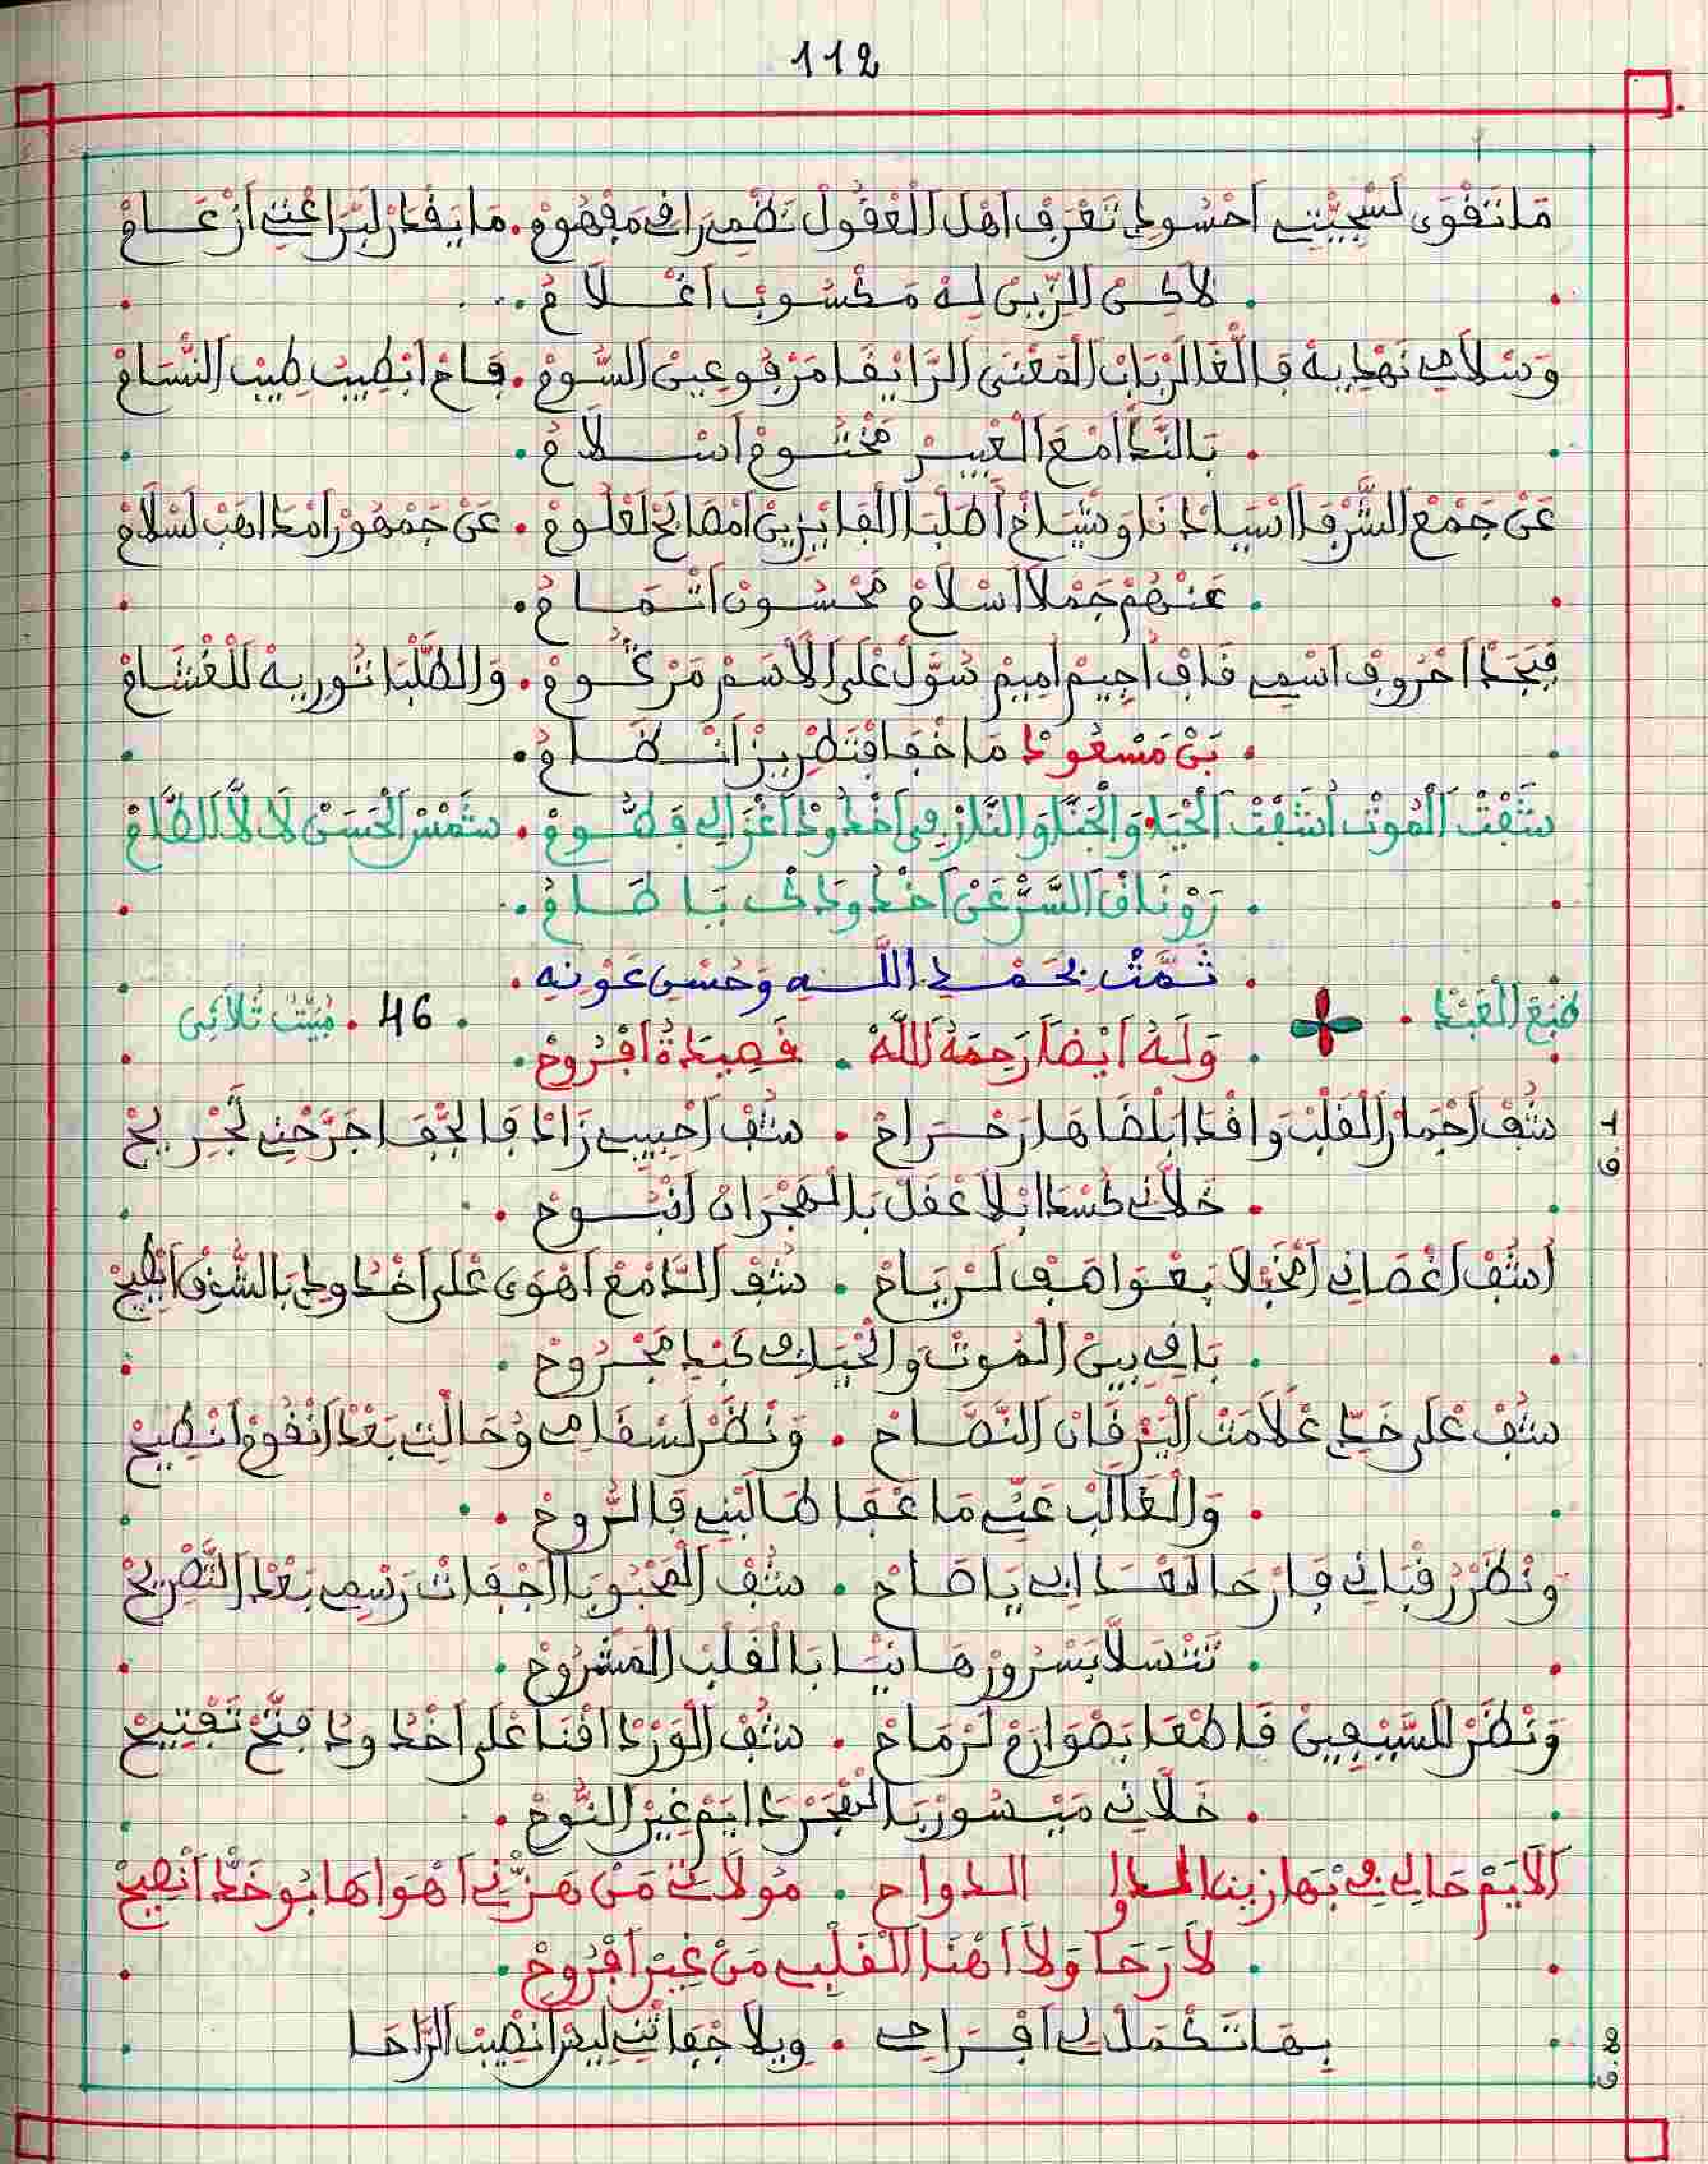 112
مَا تَقْوَى لَسْجِيّْتِي اَحْسُودِي تَعْرَفْ اَهْلْ الْعْقُولْ نَظْمِي رَاقِي مَفْهُومْ . مَا يَقْدَرْ لَبْرَاعْتِي اَزْعَامْ
. لَاكِنْ الرّْبِينْ لِهْ مَكْسُوبْ اَغْلَامُ .
وَسْلَامِي نَهْدِيهْ فَالْغَا لَرْبَابْ الْمَعْنَى الرَّايْقَا مَرْفُوعِينْ السُّومْ . فَاحْ ابْطِيبْ طِيبْ النّْسَامْ
. بَالنَّدْ اَمْعَ الْعْبِيرْ مَخْتُومْ اَسْلَامُ .
عَنْ جَمْعْ الشُّرْفَا اَسْيَادْنَا وَشْيَاخْ اَطْلْبَا الْفَايْزِينْ اَمْصَابَحْ لَعْلُومْ . عَنْ جَمْهُورْ اَمْدَاهَبْ لَسْلَامْ
. عَنْهُمْ جَمْلَا اَسْلَامْ مَحْسُونْ اَتْمَامُ .
فَبْجَدْ اَحْرُوفْ اَسْمِي قَافْ اَجِيمْ اَمِيمْ سَوَّلْ عْلَى الْاَسَمْ مَرْگُومْ . وَالطُّلْبَا تُورِيهْ لَلْغْشَامْ
. بَنْ مَسْعُودْ مَا خْفَا فْتَطْرِيزْ اَنْظَامُ .
شَفْتْ الْمُوتْ اُشَفْتْ الْحْيَا وَالْجَنَّا وَالنَّارْ فِي اَخْدُودْ اَغْزَالِي فَطُّومْ . شَمْسْ الْحَسَنْ لَا لَّا الطَّامْ
. رَوْنَاقْ السَّرْ عَنْ اَخْدُودَكْ يَا طَامُ .
. تَمَّتْ بِحَمْدِ اللَّهِ وَحُسْنِ عَوْنِهِ .
طَبْعْ الْعَبْدَا . . 46 . مْبَيّْتْ ثُلَاثِي
. وَلَهُ اَيْضًا رَحِمَهُ اللَّهْ . قَصِيدَةُ اَفْرُوحْ .
ق 1
شُفْ اَجْمَارْ الْقَلْبْ وَافْدَا بَلْضَاهَا رَحْرَاحْ . شُفْ اَحْبِيبِي زَادْ فَالجّْفَا جَرَّحْنِي تَجْرِيحْ
. خَلَّانِي كَسْدَا بْلَا عْقَلْ بَالْهَجْرَانْ اَنْبُوحْ .
اُشُفْ اَغْصَانِي اَمْخَبْلَا بَعْوَاصَفْ لَرْيَاحْ . شُفْ الدَّامَعْ اَهْوَى عْلَى اَخْدُودِي بَالشُّوقْ اَيْطِيحْ
. بَاقِي بِينْ الْمُوتْ وَالْحْيَا كَبْدِي مَجْرُوحْ .
شُفْ عْلَى خَدِّي عْلَامَتْ الْيَرْقَانْ النَّصَّاحْ . وَنْظَرْ لَسْقَامِي وُحَالْتِي بَعْدْ اَنْقُومْ اَنْطِيحْ
. وَالْغَالَبْ عَنِّي مَا عْفَا طَالَبْنِي فَالرُّوحْ .
وَنْظَرْ رَقْبَانِي فَارْحَا لَعْدَابِي يَا صَاحْ . شُفْ الْمَحْبُوبَا اَجْفَاتْ رَسْمِي بَعْدْ التَّصْرِيحْ
. تَتْسَلَّا بَسْرُورْ هَانْيَا بَالْقَلْبْ الْمَشْرُوحْ .
وَنْظَرْ لَلسَّيْفِينْ قَاطْعَا بَصْوَارَمْ لَرْمَاحْ . شُفْ الْوَرْدْ اَقْنَا عْلَى اَخْدُودُ فَتَّحْ تَفْتِيحْ
. خَلَّانِي مَيْسُورْ بَالْهْجَرْ دَايَمْ غِيرْ النُّوحْ .
اَلَايَمْ حَالِي فِي بْهَا زِينْ الدواح . مُولَاتِي مَنْ هَزّْنِي اَهْوَاهَا بُوخَدّْ اَنْصِيحْ
. لَا رَحَا وَلَا اَهْنَا الْقَلْبِي مَنْ غِيرْ اَفْرُوحْ .
ق 2
بِهَا تَكْمَلْ لِي اَفْرَاحِي . وِيلَا جْفَاتْنِي لِيسْ اَنْصِيبْ الرَّاحَا